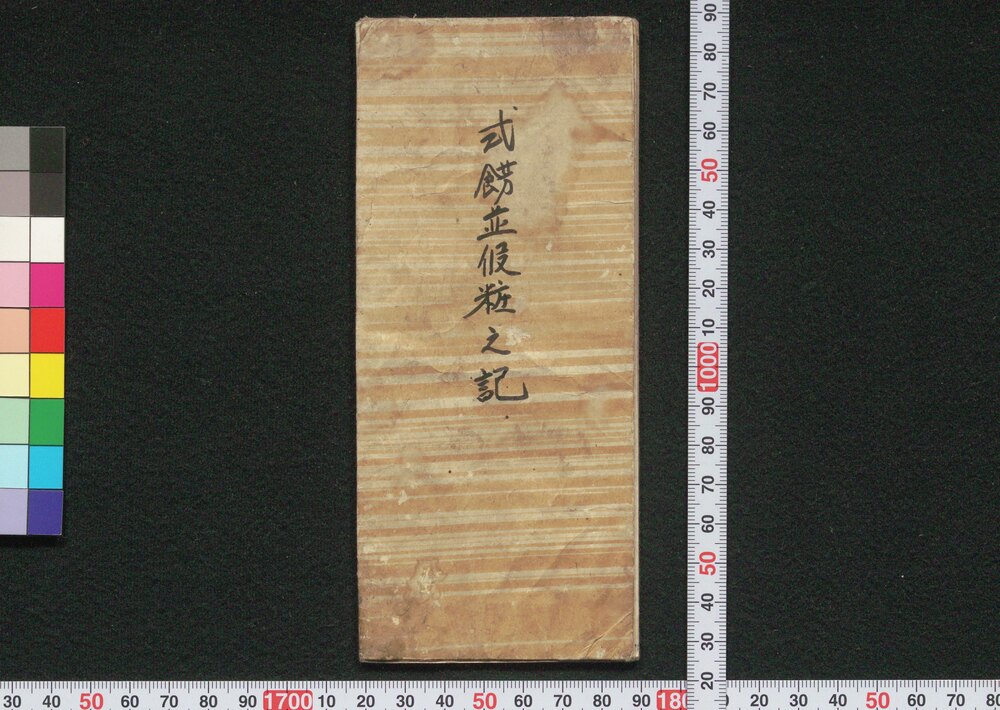 式餝並假粧之記
90
80
70
60
50
40
30
20
10
1000
90
80
70
60
50
40
30
20
30 40 50 60 70 80 90 1700 10 20 30 40 50 60 70 80 90 180 20 30 40 50 60 70 80